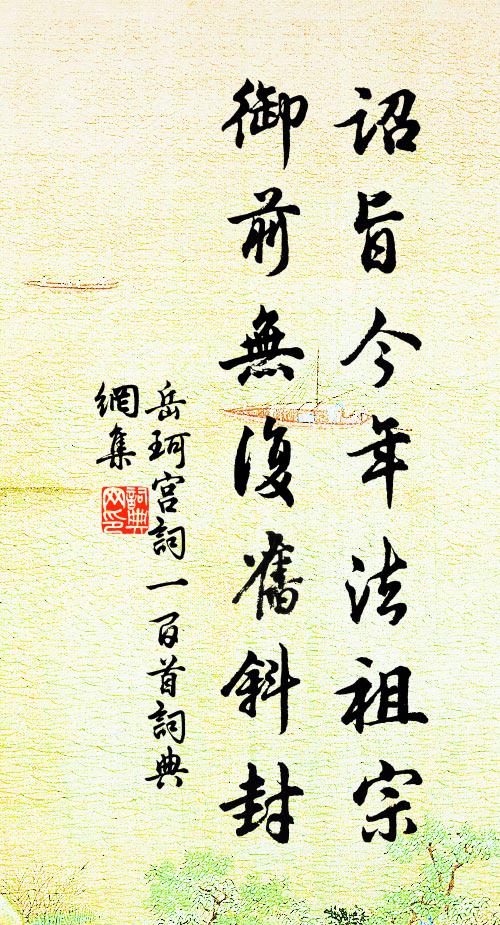 詔旨今年法祖宗
御前無復舊斜封
岳珂宫詞一百首詞典
網集
詞典
网印